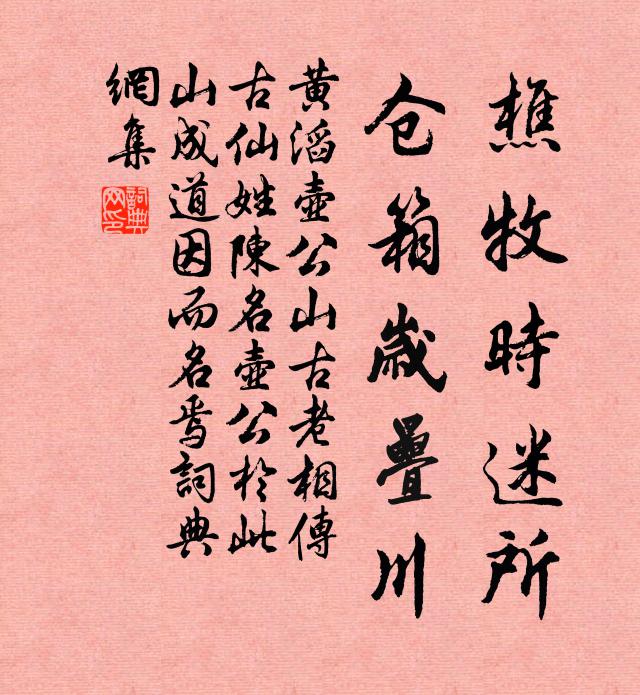 樵牧時迷所
仓箱歲疊川
黄滔壺公山古老相傳
古仙姓陳名壺公於此
山成道因而名焉詞典
網集
詞典
网印